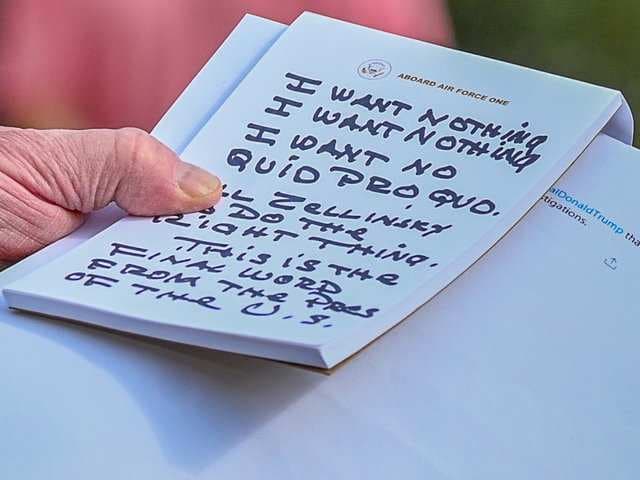 ABOARD AIR FORCE ONE
I WANT NOTHING
I WANT NOTHING
I WANT NO
QUID PRO QUO.
ZELLINSKY
DO THE
RIGHT THING.
THIS IS THE
FINAL WORD
FROM THE PRES
OF THE U.S.
alDonaldTrump tha
tigations.